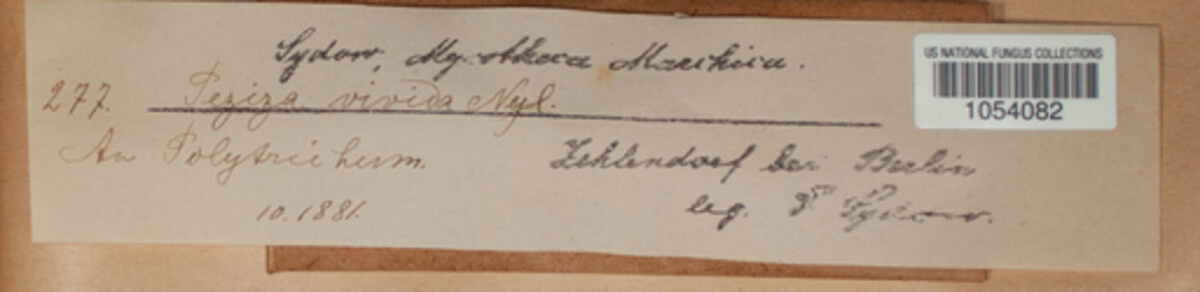 Sydow, Mycotheca Marchica.
277. Peziza vivida Nyl.
An Polytrichum.
10.1881.
Zehlendorf bei Berlin
leg. P. Sydow.
US NATIONAL FUNGUS COLLECTIONS
1054082